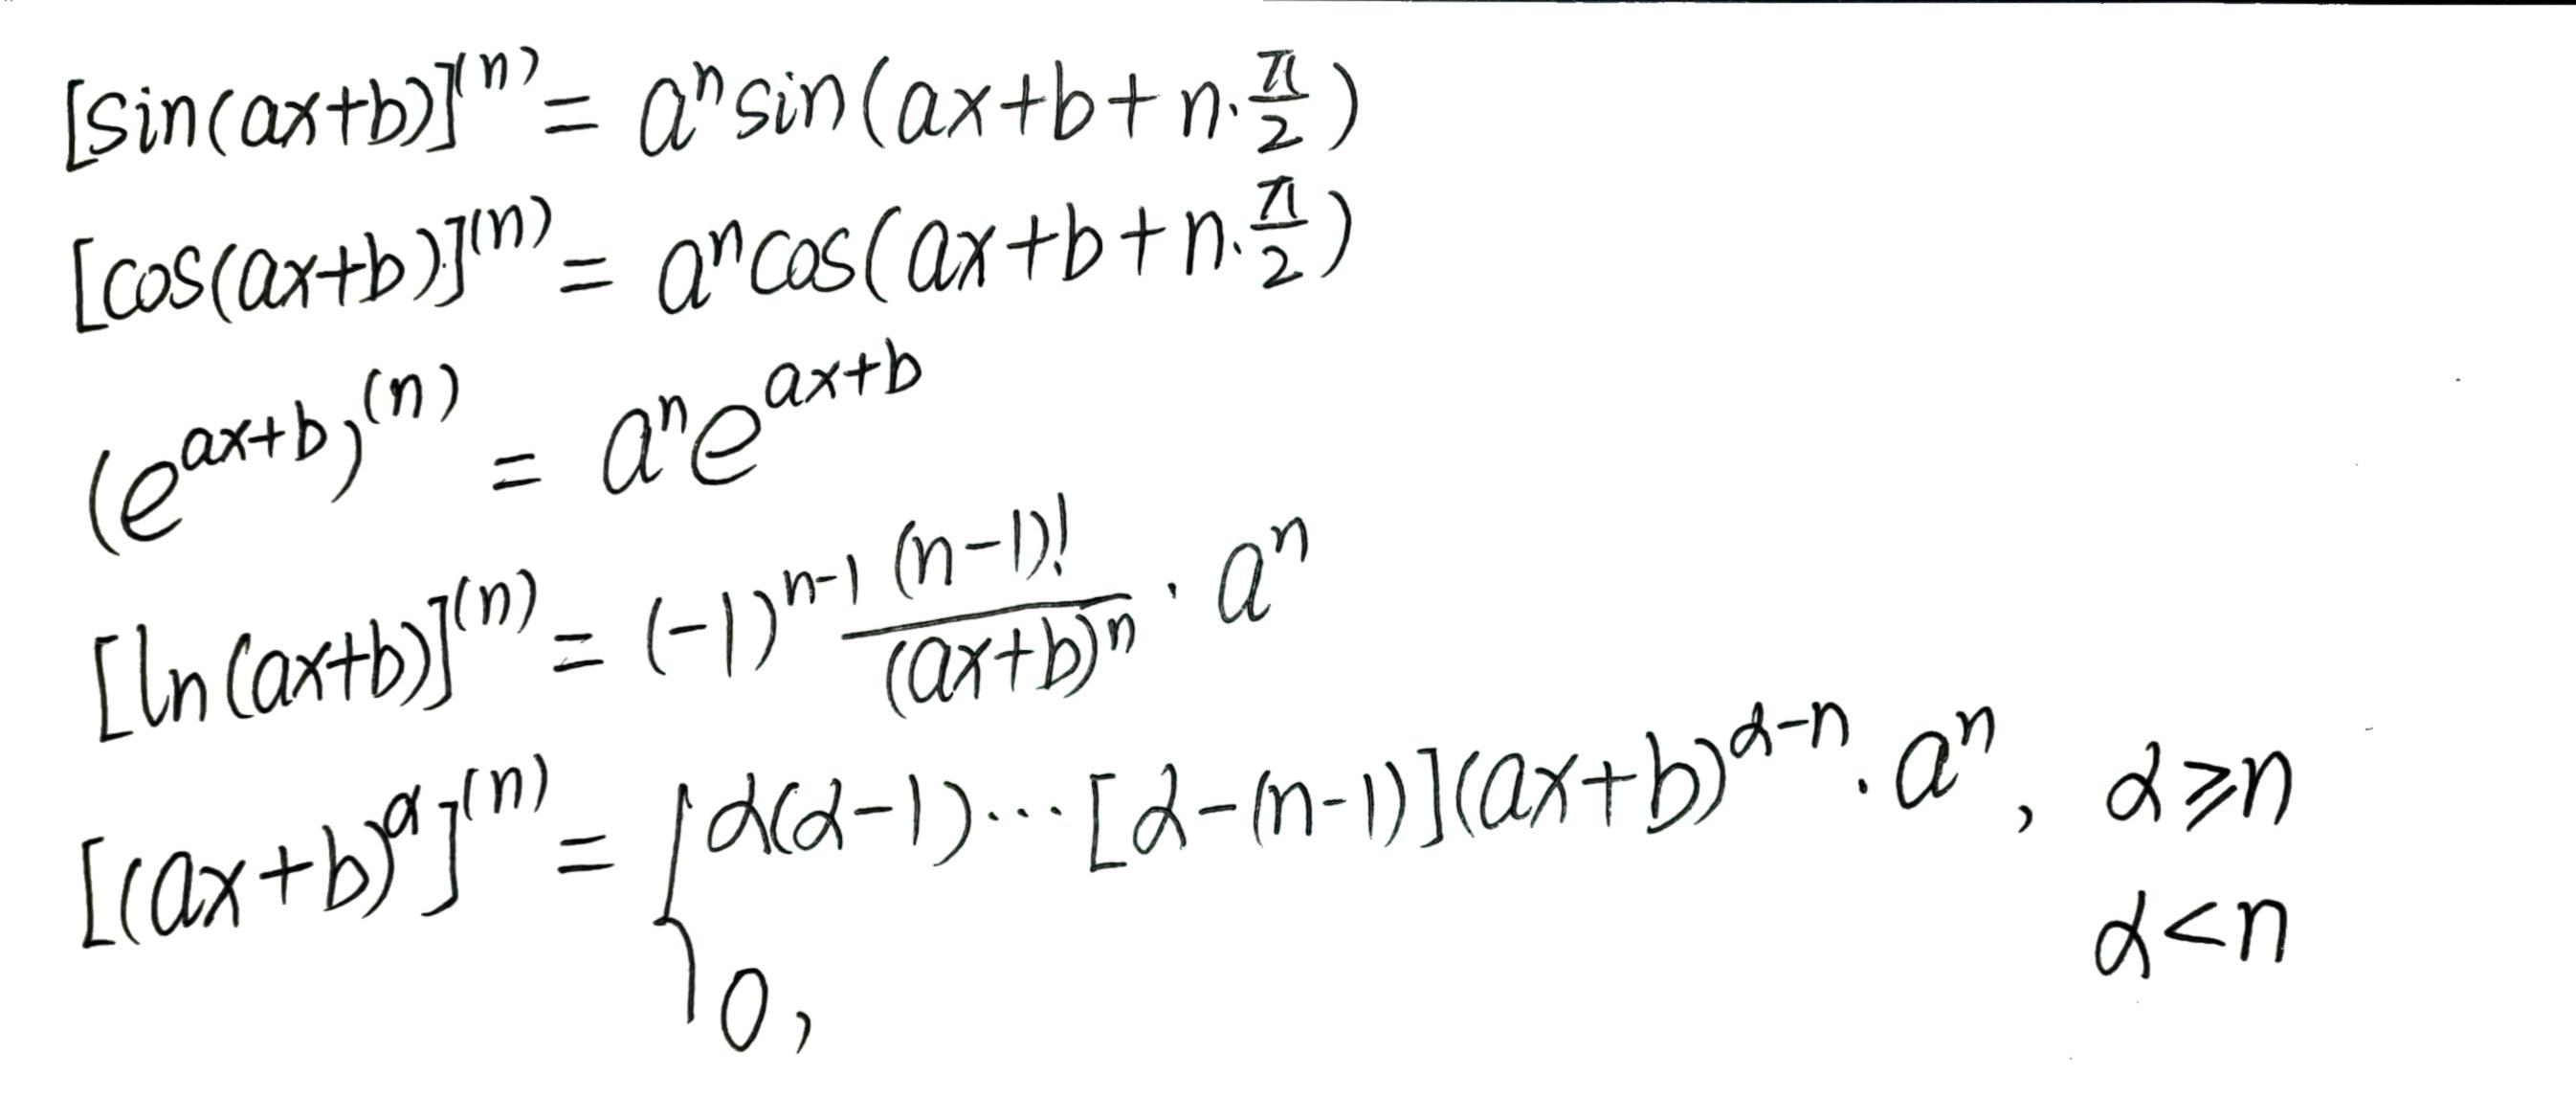 [sin(ax+b)]^(n) = a^n sin(ax+b+n·π/2)
[cos(ax+b)]^(n) = a^n cos(ax+b+n·π/2)
(e^(ax+b))^(n) = a^n e^(ax+b)
[ln(ax+b)]^(n) = (-1)^(n-1) (n-1)!/(ax+b)^n · a^n
[(ax+b)^α]^(n) = { α(α-1)···[α-(n-1)](ax+b)^(α-n) · a^n, α≥n
0, α<n